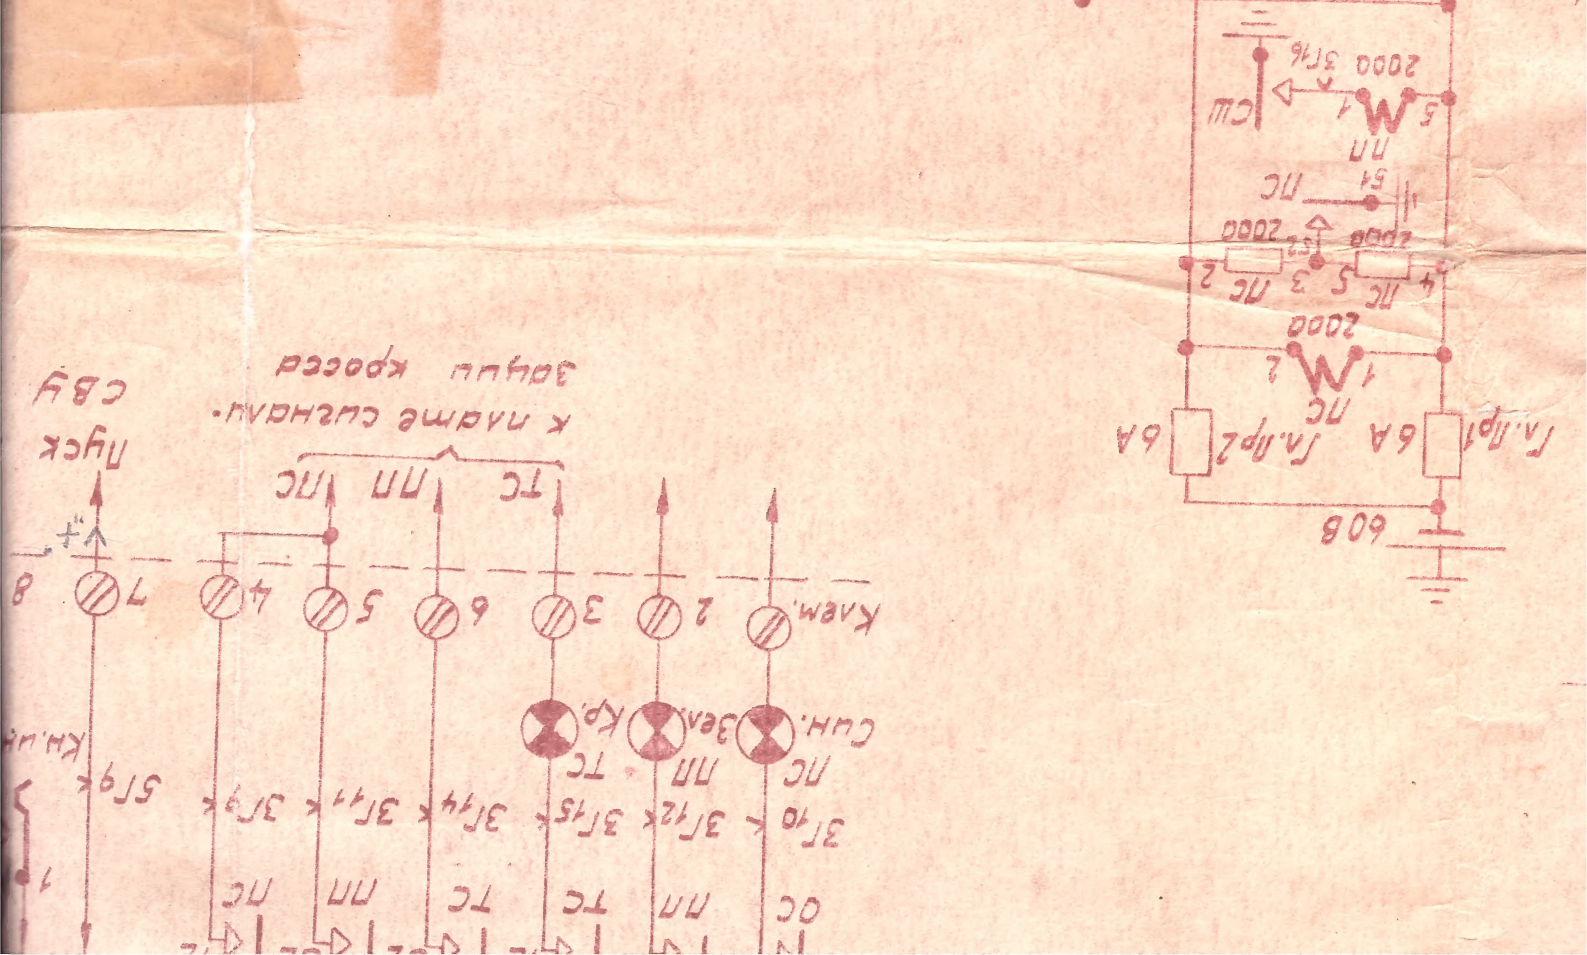 ОС ПП ТС ТС ПП ПС 1
3Г10 3Г12 3Г15 3Г14 3Г11 3Г9 5Г9
ПС ПП ТС
Син. Зел. Кр. Кн.ин.
Клем. 2 3 6 5 4 7 8
"+"
ТС ПП ПС
Пуск
СВУ
К плате сигнали-
зации кросса
60В
Гл.Пр1 6А Гл.Пр2 6А
ПС
1 2
2000
4 ПС 5 3 ПС 2
2000 52 2000
51 ПС
ПП
5 1 СШ
2000 3Г16